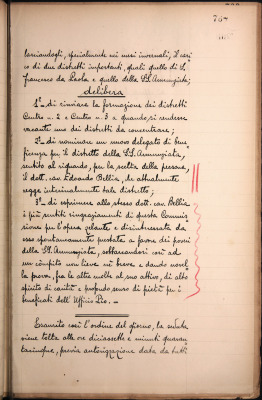 764
lasciandogli, specialmente nei mesi invernali, il cari-
co di due distretti importanti, quali quello di S.
Francesco da Paola e quello della SS. Annunziata;
delibera
1° di rinviare la formazione dei distretti
Centro n. 2 e Centro n. 3 a quando si rendesse
vacante uno dei distretti da concentrare;
2° di nominare un nuovo delegato di bene-
ficenza per il distretto della SS. Annunziata,
sentito al riguardo, per la scelta della persona,
il dott. cav. Edoardo Bellia, che attualmente
regge interinalmente tale distretto;
3° di esprimere allo stesso dott. cav. Bellia
i più sentiti ringraziamenti di questa Commis-
sione per l'opera zelante e disinteressata da
esso spontaneamente prestata a favore dei poveri
della SS. Annunziata, sobbarcandosi così ad
un còmpito non lieve nè breve e dando novel-
la prova, fra le altre molte al suo attivo, di alto
spirito di carità e profondo senso di pietà per i
beneficati dell'Ufficio Pio. —
Esaurito così l'ordine del giorno, la seduta
viene tolta alle ore diciassette e minuti quaran-
tacinque, previa autorizzazione data da tutti